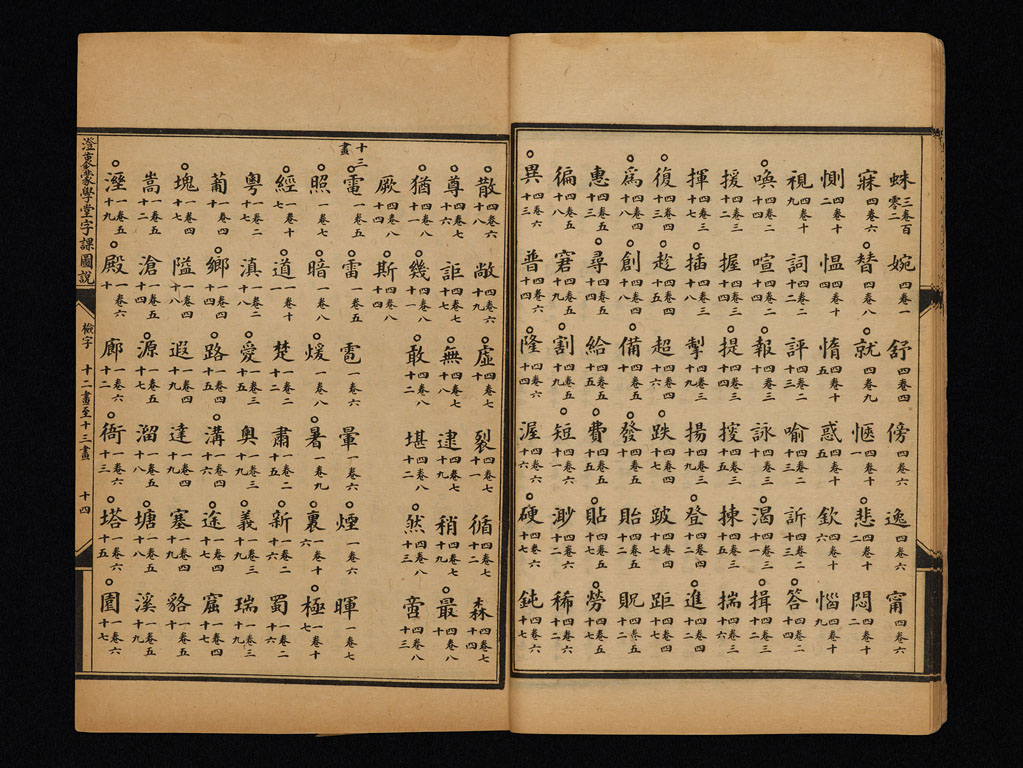 蛛三卷百零二 婉四卷一 舒四卷四 傍四卷六 逸四卷六 甯四卷六
寐四卷六 替四卷八 就四卷九 愜四卷十一 悲四卷十二 悶四卷十二
惻四卷十二 愠四卷十四 惰四卷十五 惑四卷十五 欽四卷十六 惱四卷十九
視四卷十九 詞四卷二十二 評四卷二十三 喻四卷二十三 訴四卷二十三 答四卷二十四
喚四卷二十四 喧四卷二十二 報四卷三十 詠四卷三十 渴四卷三十一 揖四卷三十二
援四卷三十二 握四卷三十二 提四卷三十四 揬四卷三十五 揀四卷三十五 揣四卷三十六
揮四卷三十六 插四卷三十八 掣四卷三十九 揚四卷三十九 登四卷四十二 進四卷四十二
復四卷四十三 趁四卷四十五 超四卷四十六 跌四卷四十七 跛四卷四十七 距四卷四十七
爲四卷四十八 創四卷四十八 備四卷五十 發四卷五十 貽四卷五十二 貺四卷五十二
惠四卷五十三 尋四卷五十四 給四卷五十五 費四卷五十五 貼四卷五十五 勞四卷五十七
徧四卷五十八 窘四卷五十九 割四卷五十九 短四卷六十一 渺四卷六十二 稀四卷六十二
異四卷六十三 普四卷六十四 隆四卷六十四 渥四卷六十六 硬四卷六十七 鈍四卷六十七
散四卷六十八 敞四卷六十九 虛四卷七十 裂四卷七十一 循四卷七十二 森四卷七十四
尊四卷七十六 詎四卷七十七 無四卷七十九 逮四卷七十九 稍四卷七十九 最四卷八十
猶四卷八十一 幾四卷八十一 敢四卷八十二 堪四卷八十二 然四卷八十三 啻四卷八十三
厥四卷八十四 斯四卷八十四
十三畫
電一卷五 雷一卷五 雹一卷六 暈一卷六 煙一卷六 暉一卷七
照一卷七 暗一卷八 煖一卷八 暑一卷九 裏一卷十六 極一卷十七
經一卷十七 道一卷十一 楚一卷二十二 肅一卷二十五 新一卷二十六 蜀一卷二十六
粵一卷二十七 滇一卷二十八 愛一卷三十五 奧一卷三十九 義一卷三十九 瑞一卷三十九
葡一卷四十 鄉一卷四十四 路一卷四十五 溝一卷四十六 途一卷四十七 窟一卷四十七
塊一卷四十七 隘一卷四十八 遐一卷四十九 達一卷四十九 塞一卷四十九 貉一卷五十
嵩一卷五十二 滄一卷五十四 源一卷五十七 溜一卷五十八 塘一卷五十八 溪一卷五十九
溼一卷五十九 殿一卷六十 廊一卷六十二 衙一卷六十三 塔一卷六十五 園一卷六十七
澄衷蒙學堂字課圖說 檢字 十二畫至十三畫 十四